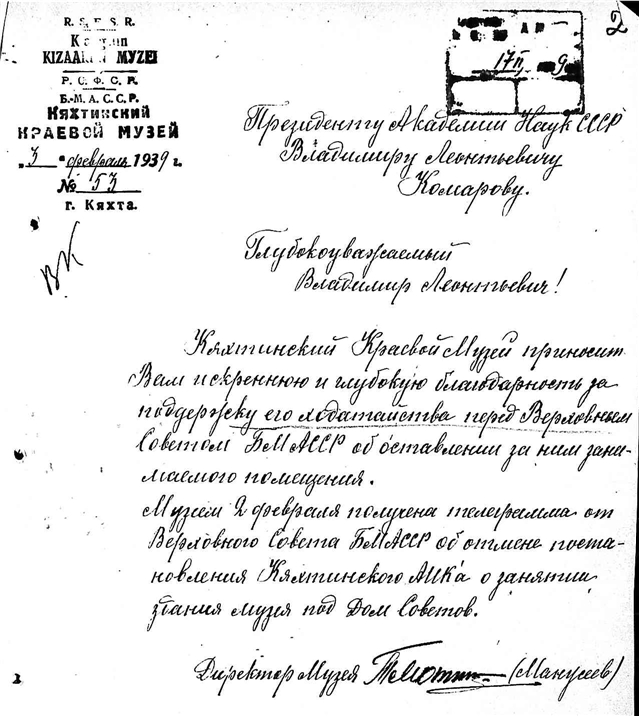 2
R. S. F. S. R.
KIZAAR MUZEI
Р. С. Ф. С. Р.
Б.-М. А. С. С. Р.
Кяхтинский
КРАЕВОЙ МУЗЕЙ
„3" февраля 1939 г.
№ 53
г. Кяхта.
17 II
9
ВК
Президенту Академии Наук СССР
Владимиру Леонтьевичу
Комарову.
Глубокоуважаемый
Владимир Леонтьевич!
Кяхтинский Краевой Музей приносит
Вам искреннюю и глубокую благодарность за
поддержку его ходатайства перед Верховным
Советом БМАССР об оставлении за ним зани-
маемого помещения.
Музеем 2 февраля получена телеграмма от
Верховного Совета БМАССР об отмене поста-
новления Кяхтинского АИКа о занятии
здания музея под Дом Советов.
Директор Музея